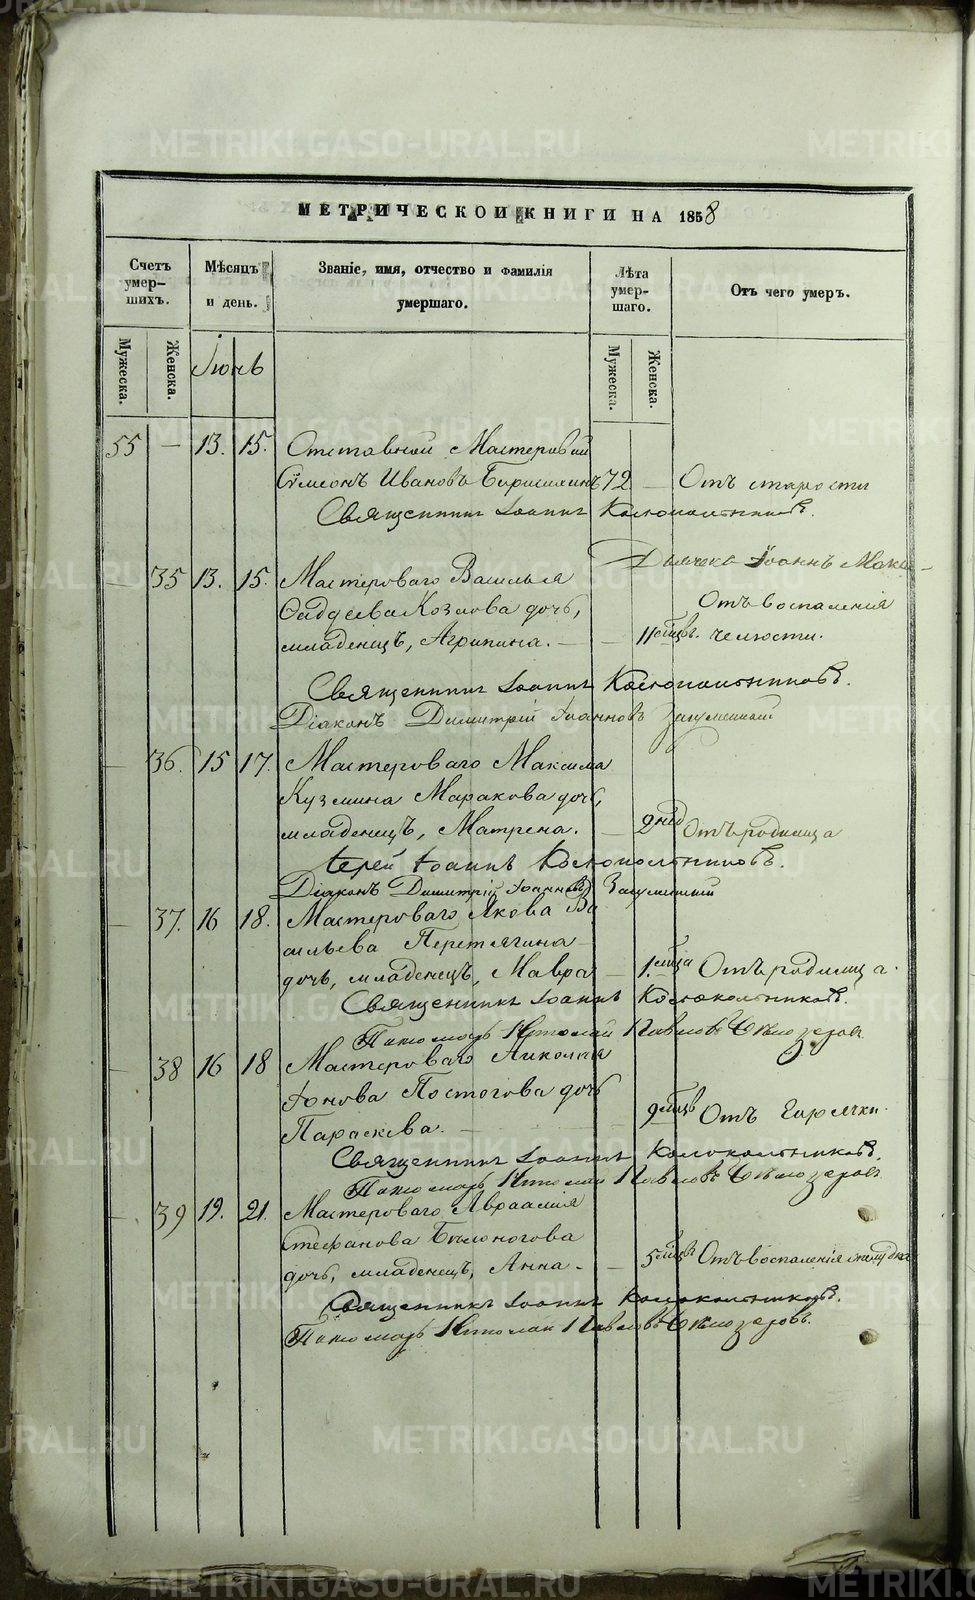 МЕТРИЧЕСКОЙ КНИГИ НА 1858
Счетъ умер-шихъ.
Мѣсяцъ и день.
Званіе, имя, отчество и фамилія умершаго.
Лѣта умер-шаго.
Отъ чего умеръ.
Мужеска.
Женска.
Мужеска.
Женска.
Іюнь
55 — 13. 15. Отставной Мастеровой
Сѵмеонъ Ивановъ 72 — Отъ старости
Священникъ Іоаннъ Колокольниковъ.
Іоаннъ
— 35 13. 15. Мастероваго Василья
Фаддеева Козлова дочь, Отъ воспаленія
младенецъ, Агрипина. — — 11 мѣцвъ. челюсти.
Священникъ Іоаннъ Колокольниковъ.
Діаконъ Димитрій Іоанновъ
— 36. 15 17. Мастероваго Максима
Кузмина Маракова дочь,
младенецъ, Матрена. — 2 нед Отъ родимца
Іерей Іоаннъ Колокольниковъ.
Діаконъ Димитрій Іоанновъ
— 37. 16 18. Мастероваго Якова Ва
сильева Перетягина
дочь, младенецъ, Мавра — 1. мѣца Отъ родимца.
Священникъ Іоаннъ Колокольниковъ.
Пономарь Николай Павловъ Бѣлозеровъ
— 38 16 18 Мастероваго Николая
Іонова Постогова дочь
Параскева. — 9 мѣцвъ Отъ горячки.
Священникъ Іоаннъ Колокольниковъ.
Пономарь Николай Павловъ Бѣлозеровъ
— 39 19. 21. Мастероваго Авраамія
Стефанова Бѣлоногова
дочь, младенецъ, Анна. — — 5 мѣцвъ Отъ воспаленія желудка
Священникъ Іоаннъ Колокольниковъ.
Пономарь Николай Павловъ Бѣлозеровъ.
METRIKI.GASO-URAL.RU